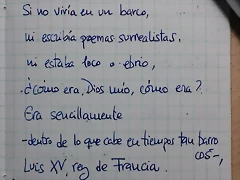 Si no vivía en un barco,
ni escribía poemas surrealistas,
ni estaba loco o ebrio,
¿cómo era, Dios mío, cómo era?
Era sencillamente
-dentro de lo que cabe en tiempos tan barro
cos-,
Luis XV, rey de Francia.